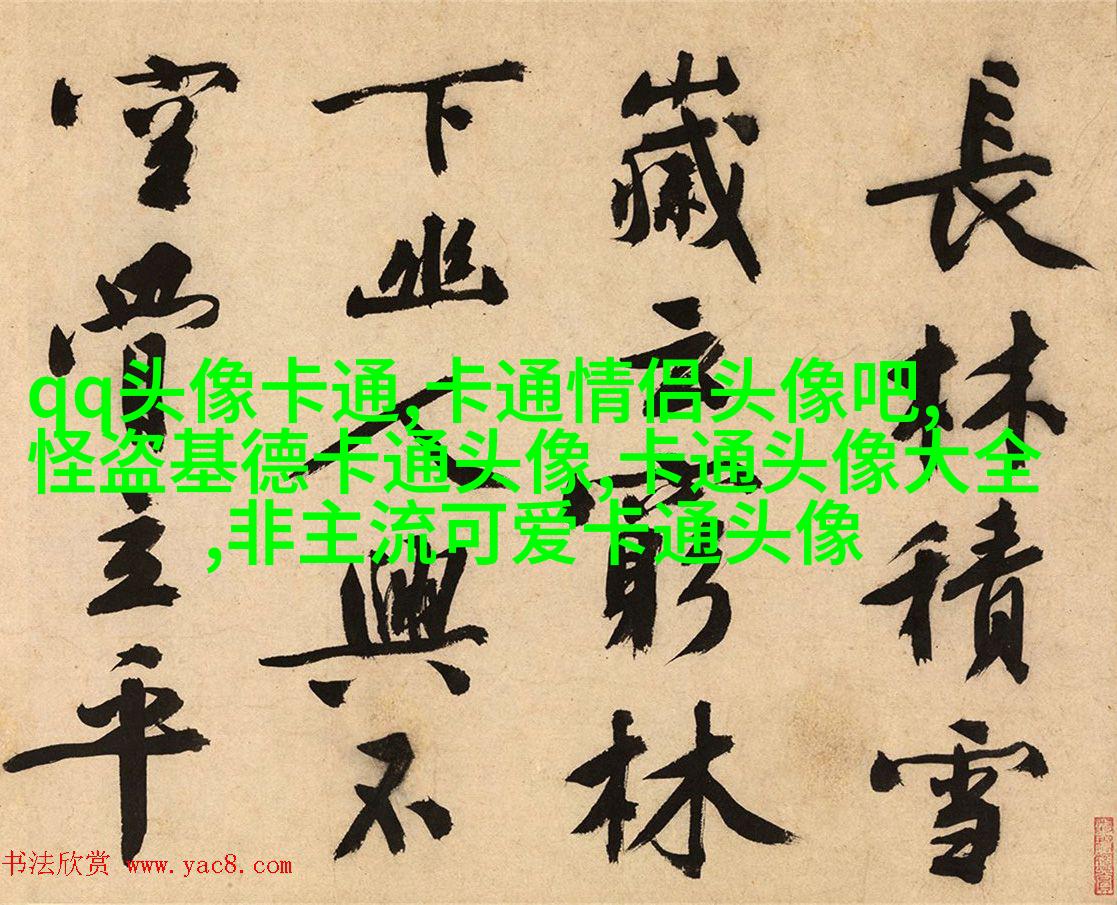 長林積雪
歲云窮林
下幽人興不
立平
qq头像卡通,卡通情侣头像吧,
怪盗基德卡通头像,卡通头像大全
,非主流可爱卡通头像
书法欣赏 www.yac8.com